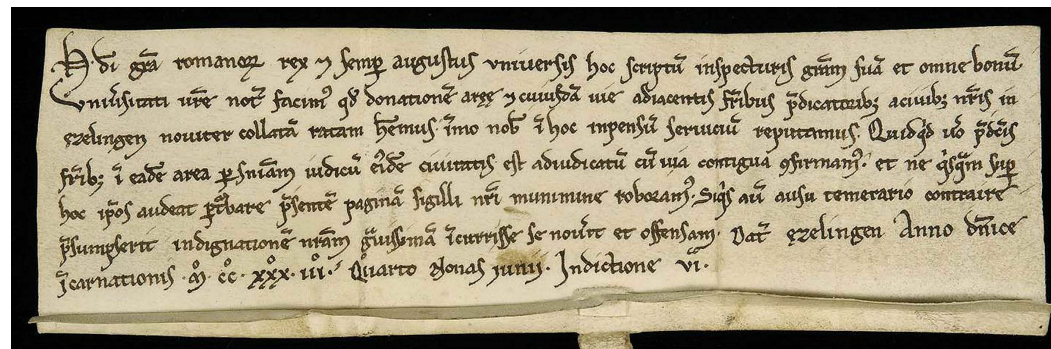 H. di gr̄a romanoꝝ rex ⁊ semꝑ augustus vniuersis hoc scriptū inspecturis grām suā et omne bonū
Uniu̾sitati vr̄e not̄ facimꝰ qd̄ donationē aręę ⁊ cuiusdā uie adiacentis fr̄ibus p̄dicatoribꝫ aciuibꝫ nr̄is in
ezelingen nouiter collatā ratam hēmus. īmo nob̄ ī hoc inpensū seruiciū reputamus. Quidqͥd u̾o p̄dc̄is
fr̄ibꝫ ī eadē area ꝑ snīam iudicū eꝰdē ciuitatis est adiudicatū cū uia contigua ꝯfirmamꝰ. et ne qͥsqͣm suꝑ
hoc ip̄os audeat ꝑt̾bare p̄sentē paginā sigilli nr̄i munimine roboramꝰ. Siqͥs aū ausu temerario contraire
p̄sumpserit indignationē nr̄am gͣuissimā īcurrisse se nou̾it et offensam. Dat̄ ęzelingen Anno dn̄ice
īcarnationis .M̊. c̊c̊. xxx. iii̊. Qͣarto Nonas iunii. Indictione vi.